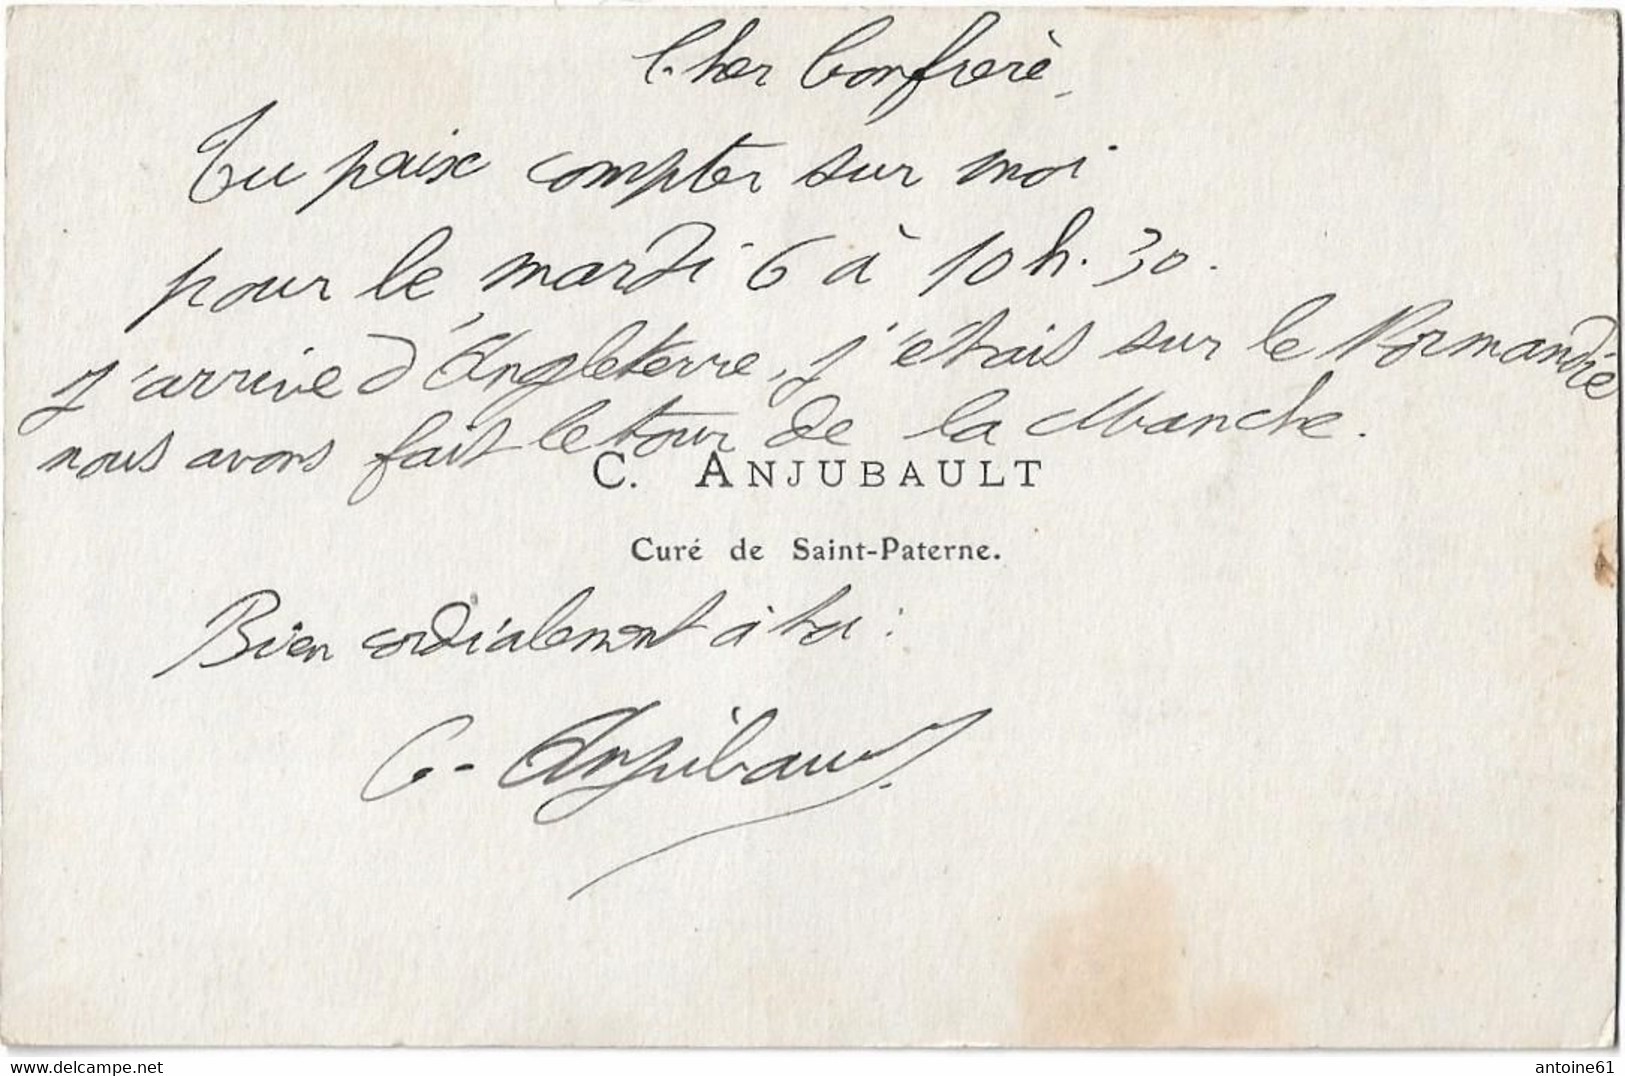 Cher Confrère,
Tu peux compter sur moi
pour le mardi 6 à 10 h. 30.
j'arrive d'Angleterre, j'étais sur le Normandie
nous avons fait le tour de la Manche.
C. ANJUBAULT
Curé de Saint-Paterne.
Bien cordialement à toi :
C. Anjubault
antoine61